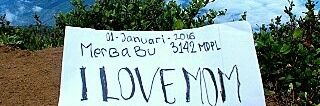 01-Januari-2016
MerBaBu 3142 MDPL
I LOVE MOM